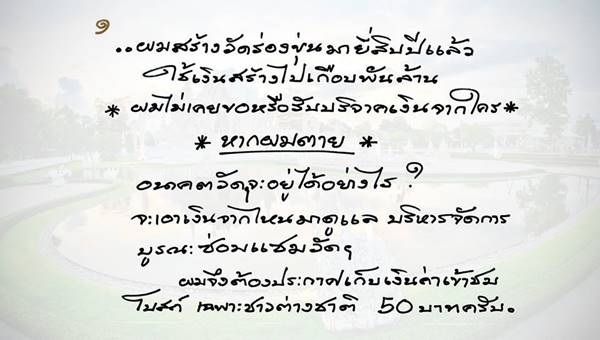 ๑
..ผมสร้างวัดร่องขุ่นมายี่สิบปีแล้ว
ใช้เงินสร้างไปเกือบพันล้าน
* ผมไม่เคยขอหรือรับบริจาคเงินจากใคร *
* หากผมตาย *
อนาคตวัดฯจะอยู่ได้อย่างไร ?
จะเอาเงินจากไหนมาดูแล บริหารจัดการ
บูรณะซ่อมแซมวัดฯ
ผมจึงต้องประกาศเก็บเงินค่าเข้าชม
โบสถ์ เฉพาะชาวต่างชาติ 50 บาทครับ.